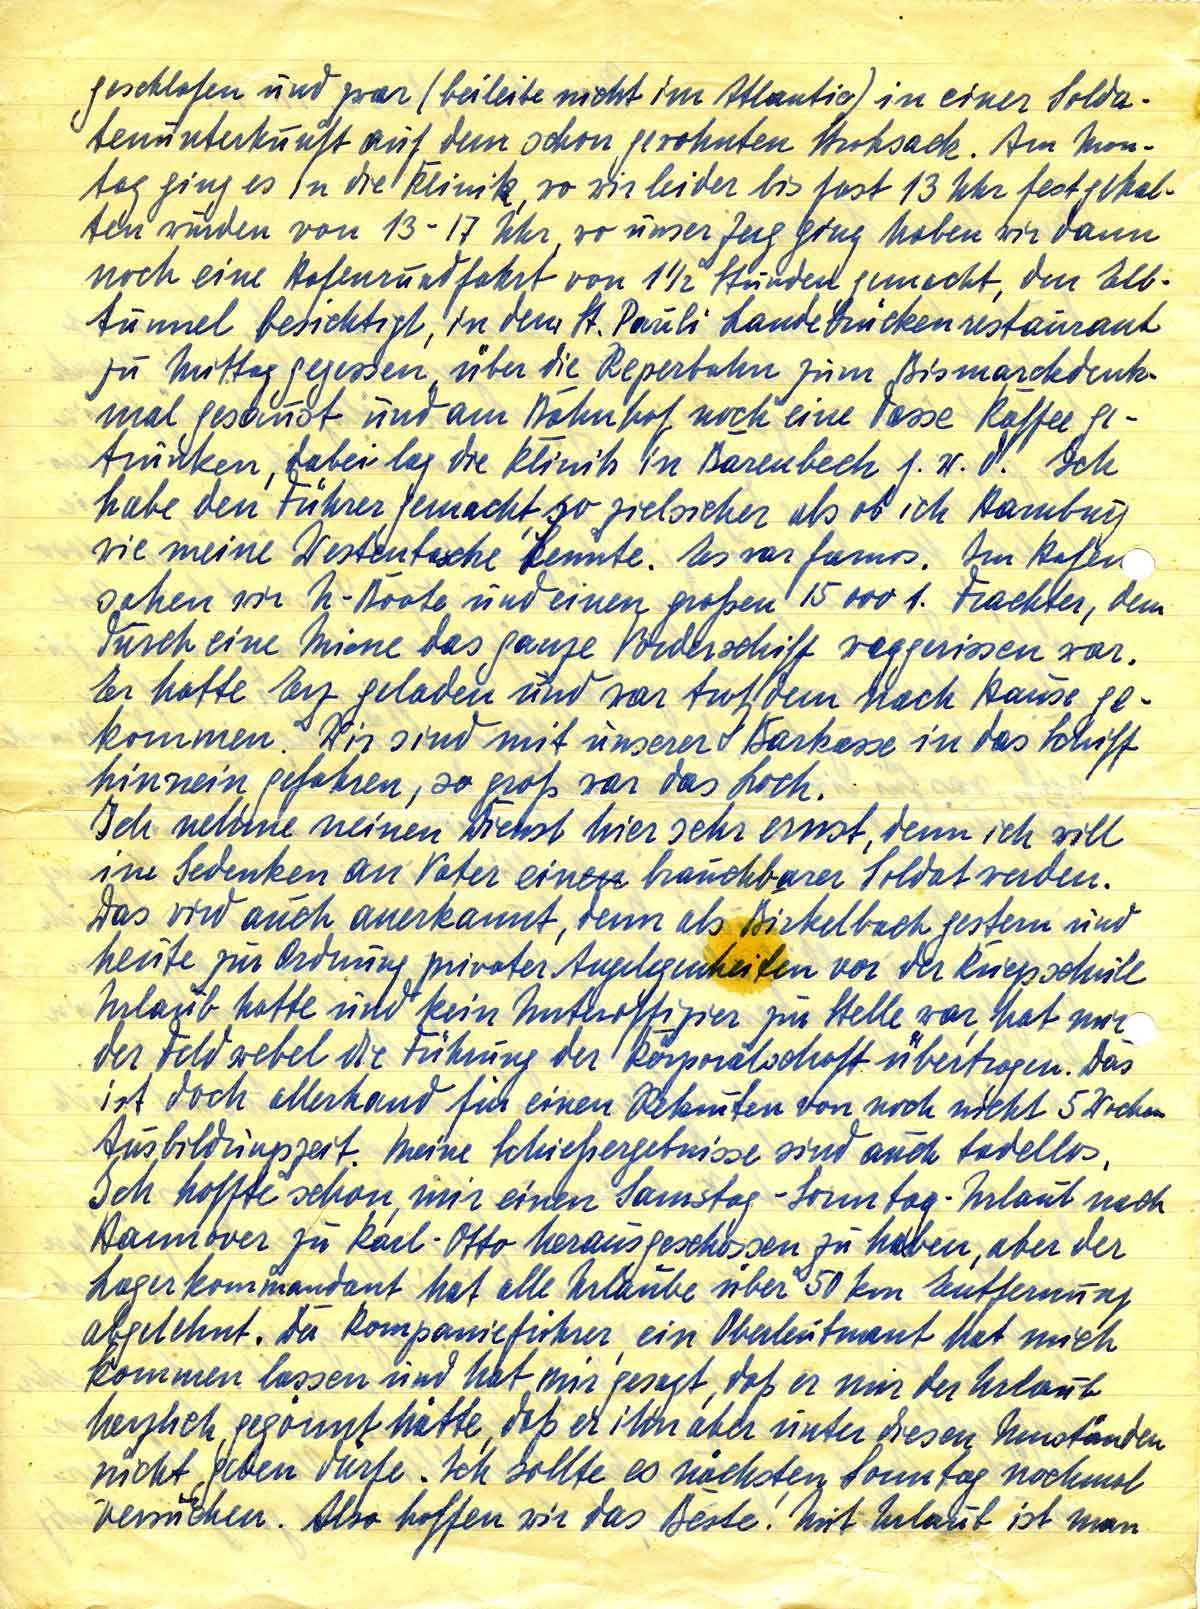 geschlafen und zwar (beileibe nicht im Atlantic) in einer Solda-
tenunterkunft auf dem schon gewohnten Strohsack. Am Mon-
tag ging es in die Klinik, wo wir leider bis fast 13 Uhr festgehal-
ten wurden von 13-17 Uhr, wo unser Zug ging haben wir dann
noch eine Hafenrundfahrt von 1 1/2 Stunden gemacht, den Elb-
tunnel besichtigt, in dem St. Pauli Landebrückenrestaurant
zu Mittag gegessen, über die Reperbahn zum Bismarckdenk-
mal gesaust und am Bahnhof noch eine Tasse Kaffee ge-
trunken, dabei lag die Klinik in Barenbeck j. w. d. Ich
habe den Führer gemacht, so zielsicher als ob ich Hamburg
wie meine Westentasche kennte. Es war famos. Im Hafen
sahen wir U-Boote und einen großen 15 000 t. Frachter, dem
durch eine Mine das ganze Vorderschiff weggerissen war.
Er hatte Erz geladen und war trotzdem nach Hause ge-
kommen. Wir sind mit unserer Barkasse in das Schiff
hinnein gefahren, so groß war das Loch.
Ich nehme meinen Dienst hier sehr ernst, denn ich will
im Gedenken an Vater ein brauchbarer Soldat werden.
Das wird auch anerkannt, denn als Birkelbach gestern und
heute zur Ordnung privater Angelegenheiten vor der Kriegsschule
Urlaub hatte und kein Unteroffizier zur Stelle war, hat mir
der Feldwebel die Führung der Korporalschaft übertragen. Das
ist doch allerhand für einen Rekruten von noch nicht 5 Wochen
Ausbildungszeit. Meine Schießergebnisse sind auch tadellos.
Ich hoffte schon, mir einen Samstag-Sonntag-Urlaub nach
Hannover zu Karl-Otto herausgeschossen zu haben, aber der
Lagerkommandant hat alle Urlaube über 50 km Entfernung
abgelehnt. Der Kompanieführer, ein Oberleutnant hat mich
kommen lassen und hat mir gesagt, daß er mir den Urlaub
herzlich gegönnt hätte, daß er ihn aber unter diesen Umständen
nicht geben dürfe. Ich sollte es nächsten Sonntag nochmal
versuchen. Also hoffen wir das Beste! Mit Urlaub ist man